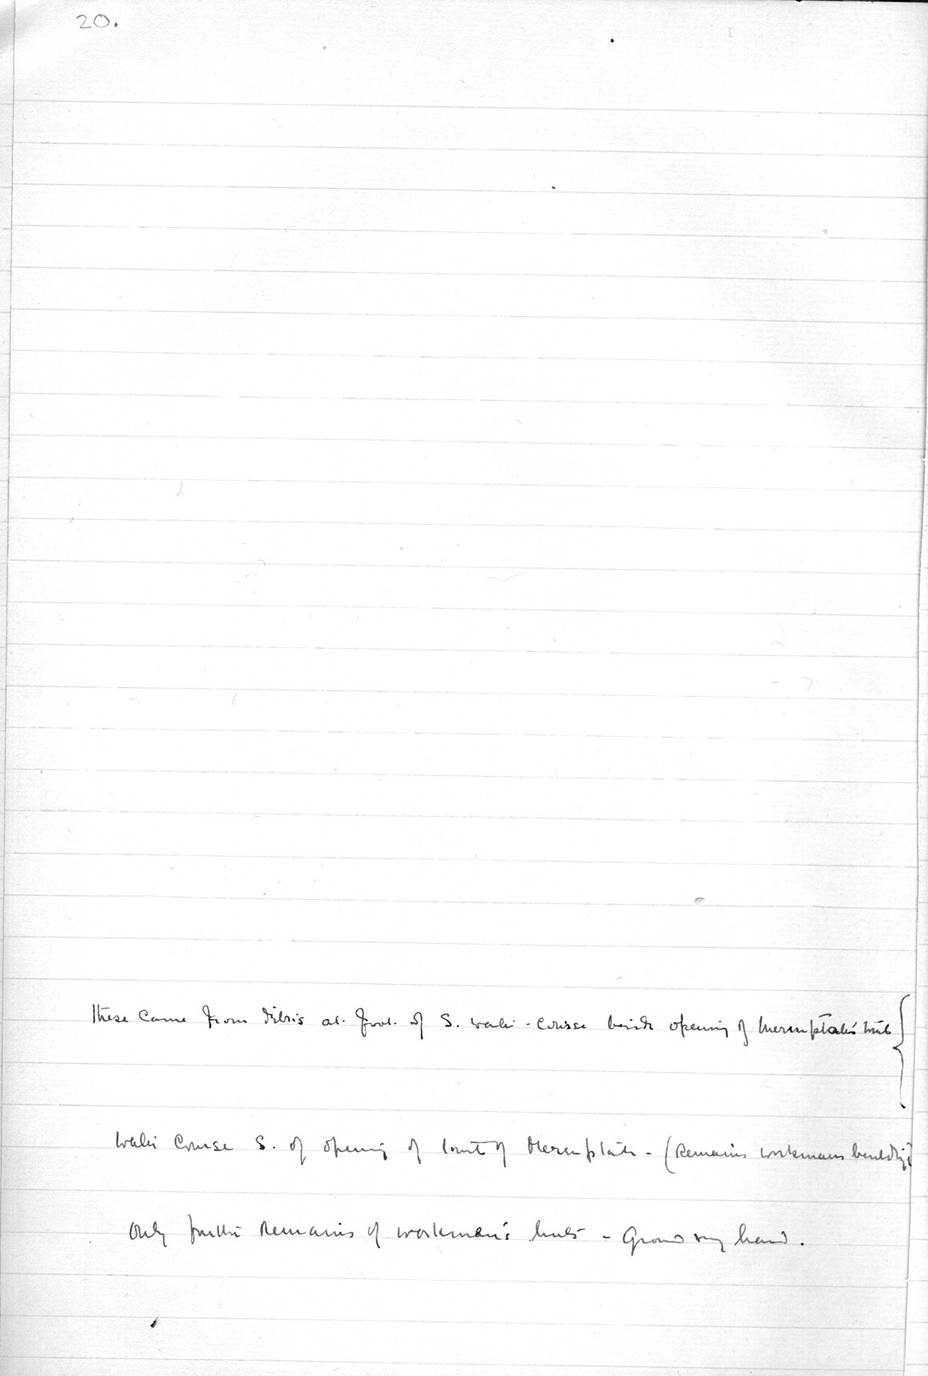 20.
These came from débris at foot of S. water-course beside opening of Merenptah's tomb
Water course S. of opening of tomb of Merenptah - (Remains workmans buildings)
Only further remains of workman's huts - Ground very hard.